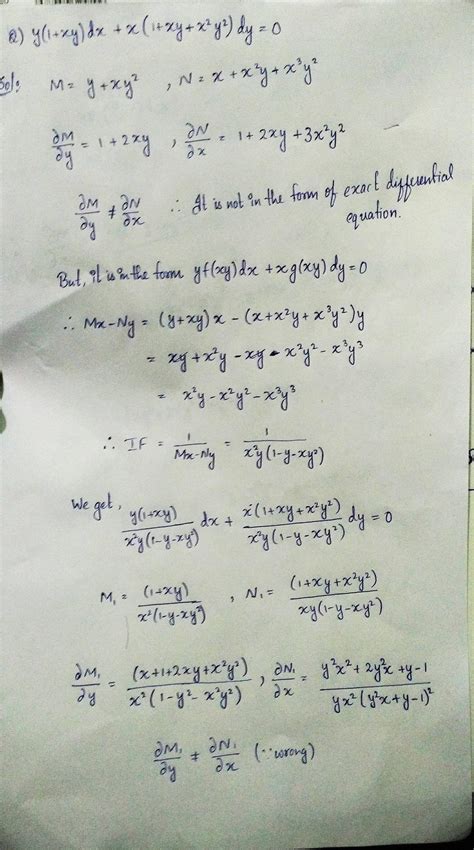 Q) y(1+xy)dx + x(1+xy+x²y²)dy=0
Sol: M= y+xy² , N= x+x²y+x³y²
∂M/∂y = 1+2xy , ∂N/∂x = 1+2xy+3x²y²
∂M/∂y ≠ ∂N/∂x ∴ It is not in the form of exact differential
equation.
But, it is in the form yf(xy)dx + xg(xy)dy=0
∴ Mx-Ny = (y+xy)x - (x+x²y+x³y²)y
= xy+x²y-xy-x²y²-x³y³
= x²y-x²y²-x³y³
∴ IF = 1/(Mx-Ny) = 1/(x²y(1-y-xy²))
We get, y(1+xy)/(x²y(1-y-xy²)) dx + x(1+xy+x²y²)/(x²y(1-y-xy²)) dy=0
M₁= (1+xy)/(x²(1-y-xy²)) , N₁= (1+xy+x²y²)/(xy(1-y-xy²))
∂M₁/∂y = (x+1+2xy+x²y²)/(x²(1-y²-x²y²)) , ∂N₁/∂x = (y²x²+2y²x+y-1)/(yx²(y²x+y-1)²)
∂M₁/∂y ≠ ∂N₁/∂x (∵wrong)